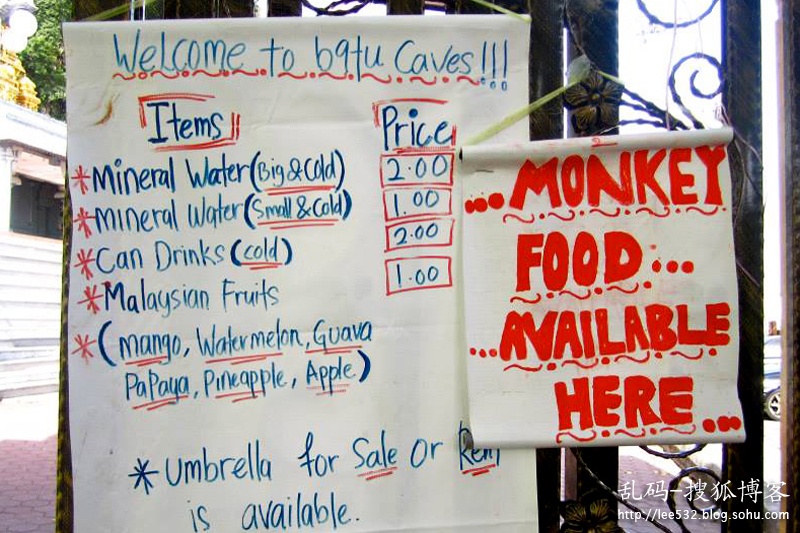 Welcome to batu Caves!!!
Items Price
*Mineral Water (Big & Cold) 2.00
*Mineral Water (Small & Cold) 1.00
*Can Drinks (cold) 2.00
*Malaysian Fruits 1.00
*(mango, Watermelon, Guava
Papaya, Pineapple, Apple)
*Umbrella for Sale Or Rent
is available.
...MONKEY
FOOD...
...AVAILABLE
HERE...
乱码-搜狐博客
http://lee532.blog.sohu.com